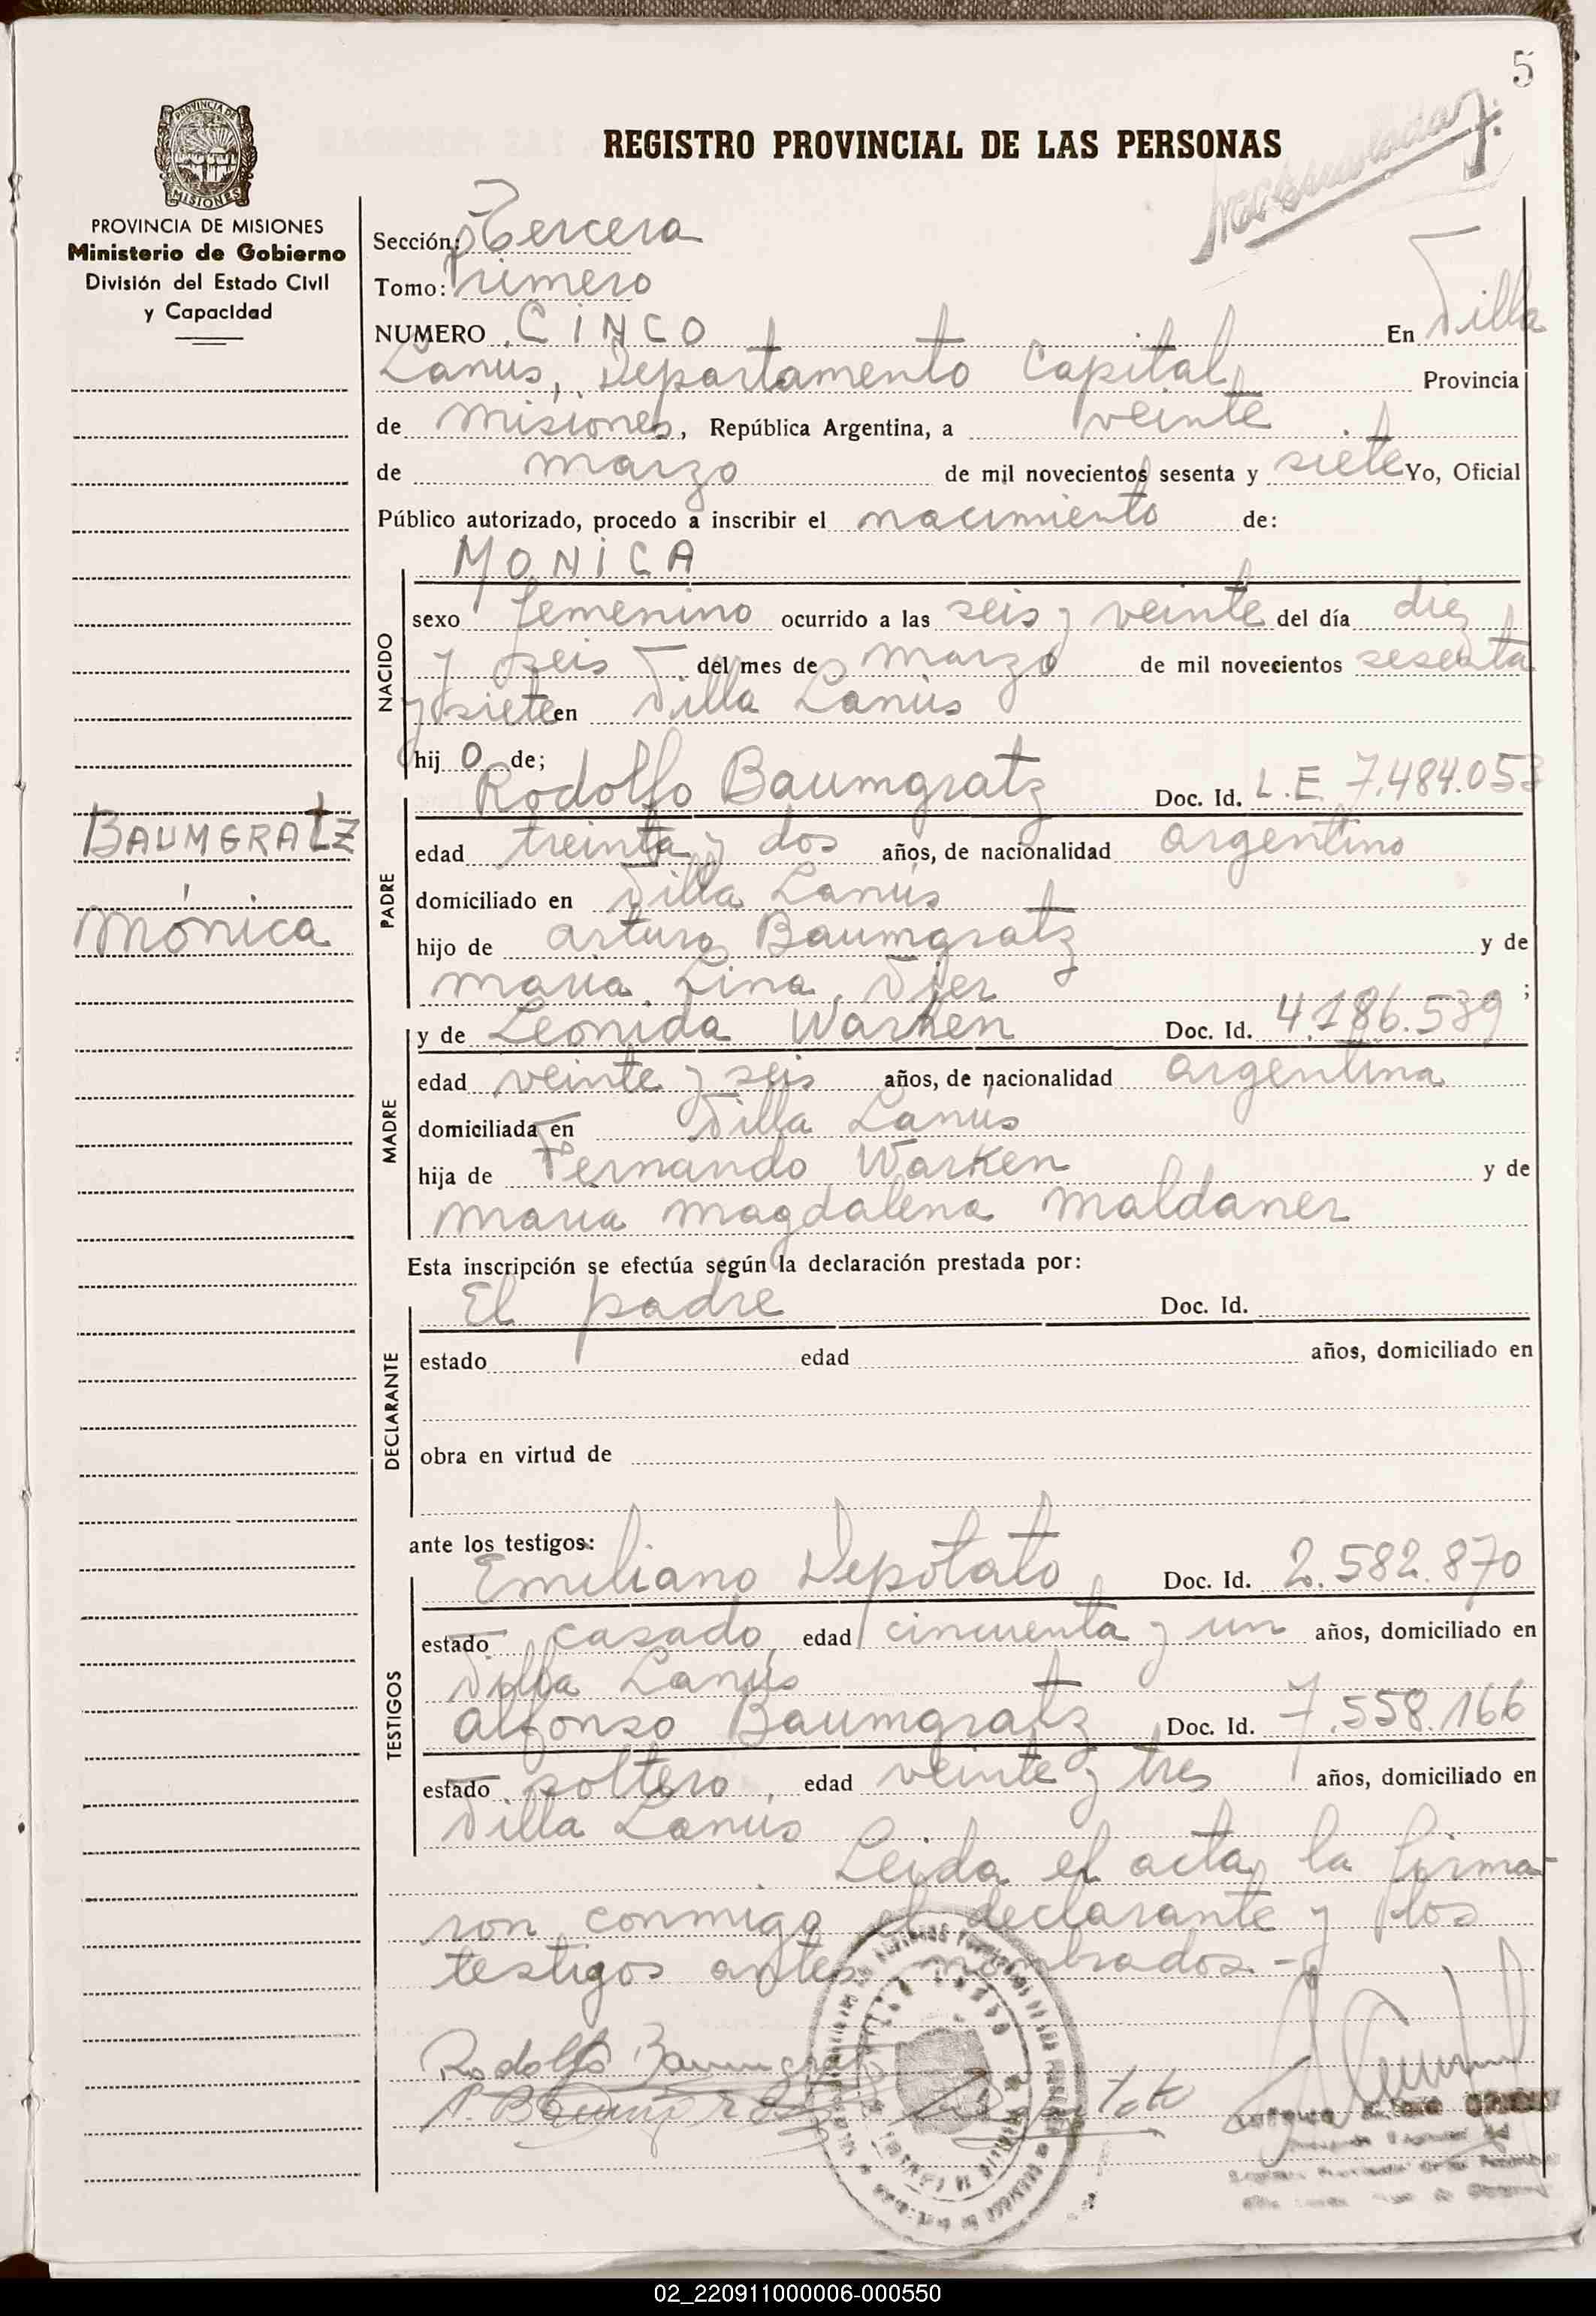 5
REGISTRO PROVINCIAL DE LAS PERSONAS
PROVINCIA DE
MISIONES
PROVINCIA DE MISIONES
Ministerio de Gobierno
División del Estado Civil
y Capacidad
Sección: Tercera
Tomo: Primero
NUMERO CINCO En Villa
Lanús, Departamento Capital, Provincia
de Misiones, República Argentina, a veinte
de marzo de mil novecientos sesenta y siete Yo, Oficial
Público autorizado, procedo a inscribir el nacimiento de:
NACIDO
MONICA
sexo femenino ocurrido a las seis y veinte del día diez
y seis del mes de marzo de mil novecientos sesenta
y siete en Villa Lanús
hij o de;
BAUMGRATZ
Mónica
PADRE
Rodolfo Baumgratz Doc. Id. L.E 7.484.053
edad treinta y dos años, de nacionalidad argentino
domiciliado en Villa Lanús
hijo de Arturo Baumgratz y de
Maria Lina Vier ;
MADRE
y de Leonida Warken Doc. Id. 4.186.539
edad veinte y seis años, de nacionalidad argentina
domiciliada en Villa Lanús
hija de Fernando Warken y de
Maria Magdalena Maldaner
Esta inscripción se efectúa según la declaración prestada por:
DECLARANTE
El padre Doc. Id.
estado edad años, domiciliado en
obra en virtud de
ante los testigos:
TESTIGOS
Emiliano Depotato Doc. Id. 2.582.870
estado casado, edad cincuenta y un años, domiciliado en
Villa Lanús
Alfonso Baumgratz Doc. Id. 7.558.166
estado soltero, edad veinte y tres años, domiciliado en
Villa Lanús
Leida el acta, la firma-
ron conmigo el declarante y los
testigos antes nombrados.-
Rodolfo Baumgratz
A. Baumgratz
02_220911000006-000550